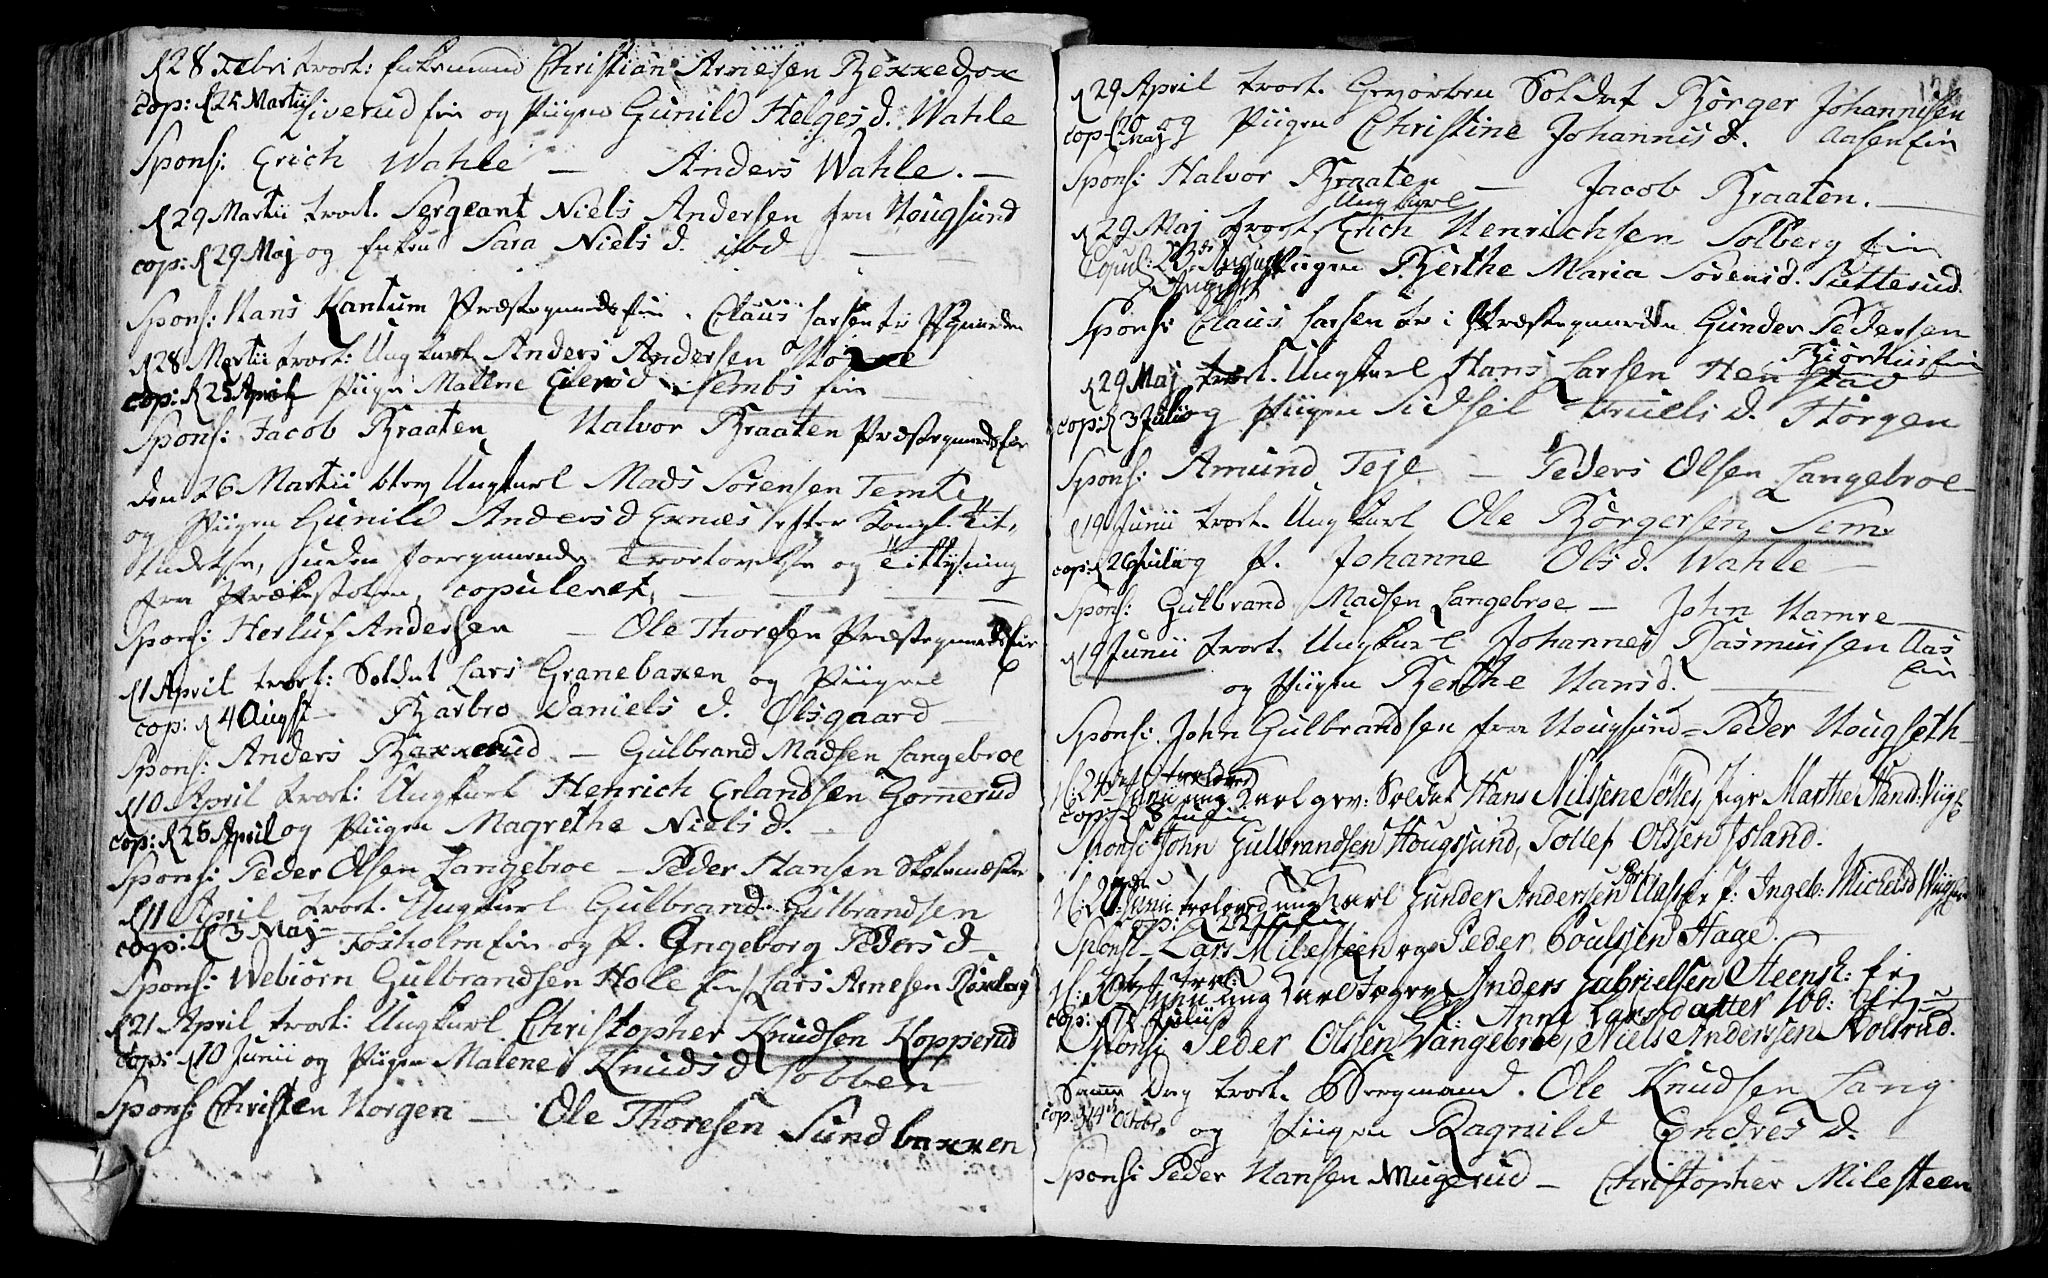 d 28 Febri trol: Enkemand Christian Arnesen
cop: d 25 Martii Siverud Eier og Piigen Gunild Helges d. Wahle
Spons: Erich Wahle — Anders Wahle. —
d 29 Martii trol. Sergeant Niels Andersen fra Hougsund
cop: d 29 Maj og Enken Sara Niels d. ibd — —
Spons: Hans Præstegaards Eier. Claus Larsen
d 28 Martii trol: Ungkarl Anders Andersen
cop: d 25 April Piigen Malene Eilersd Sembs Eier
Spons: Jacob Braaten Halvor Braaten Præstegaards Eier
Den 26 Martii blev Ungkarl Mads Sørensen Temte
og Piigen Gunild Anders d Exnæs efter Kongl. Til-
ladelse, uden foregaaende Trolovelse og Tillysning
fra Prækestolen, copuleret, — — —
Spons: Herluf Andersen — Ole Thoresen Præstegaards Eier
d 1 April trol: Soldat Lars Granebaxen og Piigen
cop: d 4 Augst — Barbro Daniels d. Olsgaard —
Spons: Anders — Gulbrand Madsen Langebroe
d 10 April trol: Ungkarl Henrich Erlandsen Gomerud
cop: d 25 April og Piigen Magrethe Niels d. —
Spons: Peder Olsen Langebroe — Peder Hansen Skolemæster
d 11 April trol. Ungkarl Gulbrand Gulbrandsen
cop: d 3 Maj — Foxholm Eier og P. Ingeborg Peders d —
Spons: Webiørn Gulbrandsen Holle Eier / Lars Arnesen
d 21 April trol: Ungkarl Christopher Knudsen Kopperud
cop: d 10 Junii og Piigen Malene Knuds d Lobben
Spons: Christen Horgen — Ole Thoresen Sundbaxxen
d 29 April trol. Geworben Soldat Børger Johannesen
cop d 20 Maj og Piigen Christine Johannis d. Aasen Eier
Spons: Halvor Braaten — Jacob Braaten. —
d 29 Maj trol. Ungkarl Erich Henrichsen Solberg Eier
Copul: 23de August og Piigen Berthe Maria Sørens d. Sutterud.
Spons: Claus Larsen i Præstegaarden Gunder Pedersen
Biørhus Eier
d 29 Maj trol. Ungkarl Hans Larsen Henstad
cop: d 3 Julii og Piigen Sidsel Truels d. Horgen
Spons: Amund Teje — Peders Olsen Langebroe
d 19 Junii trol. Ungkarl Ole Børgersen Sem.
cop: d 26 Julii og P. Johanne Ols d. Wahle —
Spons: Gulbrand Madsen Langebroe — John Hamre —
d 19 Junii trol. Ungkarl Johannes Rasmussen Aas
Eier
og Piigen Berthe Hans d. —
Spons: John Gulbrandsen fra Hougsund = Peder Hougseth
d: 24de Junii trolovet ung Karl gev: Soldat Hans Nilssen, Pige Marthe
cop: d 8 Julii
Sponsi John Gulbrandsen Hougssund, Tollef Olssen Island.
trolovet ung Karl Gunder Anderssen P. Ingeb: Michelsd
cop:
Sponsi — Lars Milesteen og Peder Poulssen Hage.
Junii ung Karl Anders Gabrielsen Eie
cop: Julii P: Anne Larsdatter ibd: Eie
Sponsi Peder Olssen Langebroe, Niels Anderssen Kolsrud.
Samme Dag trol. Bergmand. Ole Knudsen Lang
cop: d 14 Octobr. og Piigen Ragnild Endres d.
Spons: Peder Hansen Mugerud — Christopher Milesteen